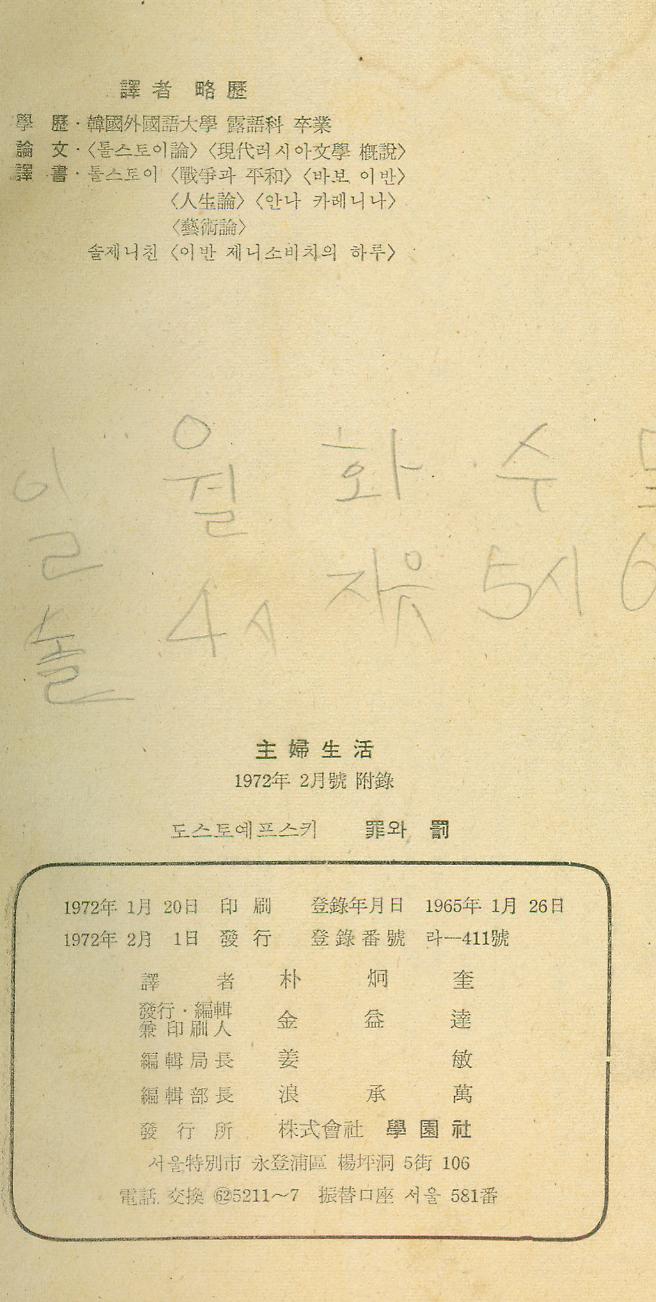 譯者 略歷
學 歷·韓國外國語大學 露語科 卒業
論 文·〈톨스토이論〉〈現代러시아文學 槪說〉
譯 書·톨스토이〈戰爭과 平和〉〈바보 이반〉
〈人生論〉〈안나 카레니나〉
〈藝術論〉
솔제니친〈이반 제니소비치의 하루〉
일 월 화 수
놀 4시 자유 5시 6
主婦生活
1972年 2月號 附錄
도스토예프스키 罪와 罰
1972年 1月 20日 印 刷 登錄年月日 1965年 1月 26日
1972年 2月 1日 發 行 登錄番號 라—411號
譯 者 朴 炯 奎
發行·編輯
兼印刷人 金 益 達
編輯局長 姜 敏
編輯部長 浪 承 萬
發 行 所 株式會社 學園社
서울特別市 永登浦區 楊坪洞 5街 106
電話 交換 ㉒5211~7 振替口座 서울 581番